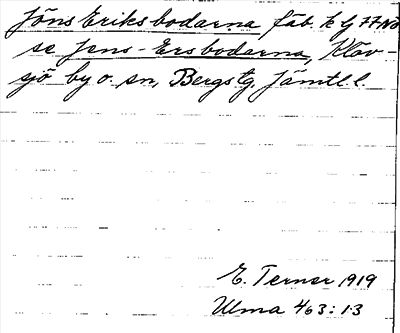 Jöns Eriksbodarna fäb. k G 77 NO
se Jens-Ersbodarna, Klöv-
sjö by o. sn, Bergs tg. Jämtl. l.
E. Terner 1919
Ulma 463:13